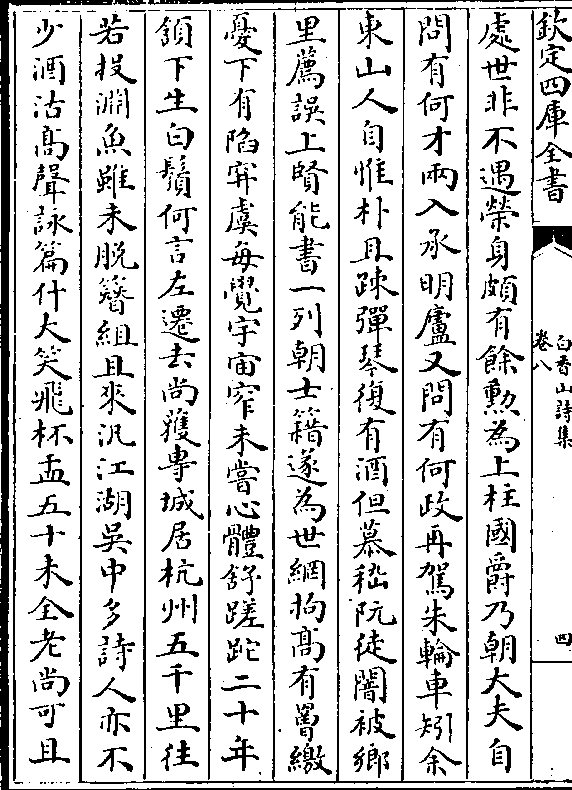 欽定四庫全書
白香山詩集
卷八
四
處世非不遇榮身頗有餘勲為上柱國爵乃朝大夫自
問有何才兩入承明廬又問有何政再駕朱輪車矧余
東山人自惟朴且踈彈琴復有酒但慕嵇阮徒闇被鄉
里薦誤上賢能書一列朝士籍遂為世網拘髙有罾繳
憂下有陷穽虞每覺宇宙窄未嘗心體舒蹉跎二十年
頷下生白鬚何言左遷去尚獲專城居杭州五千里往
若投淵魚雖未脱簪組且來汎江湖吳中多詩人亦不
少酒沽髙聲詠篇什大笑飛杯盂五十未全老尚可且